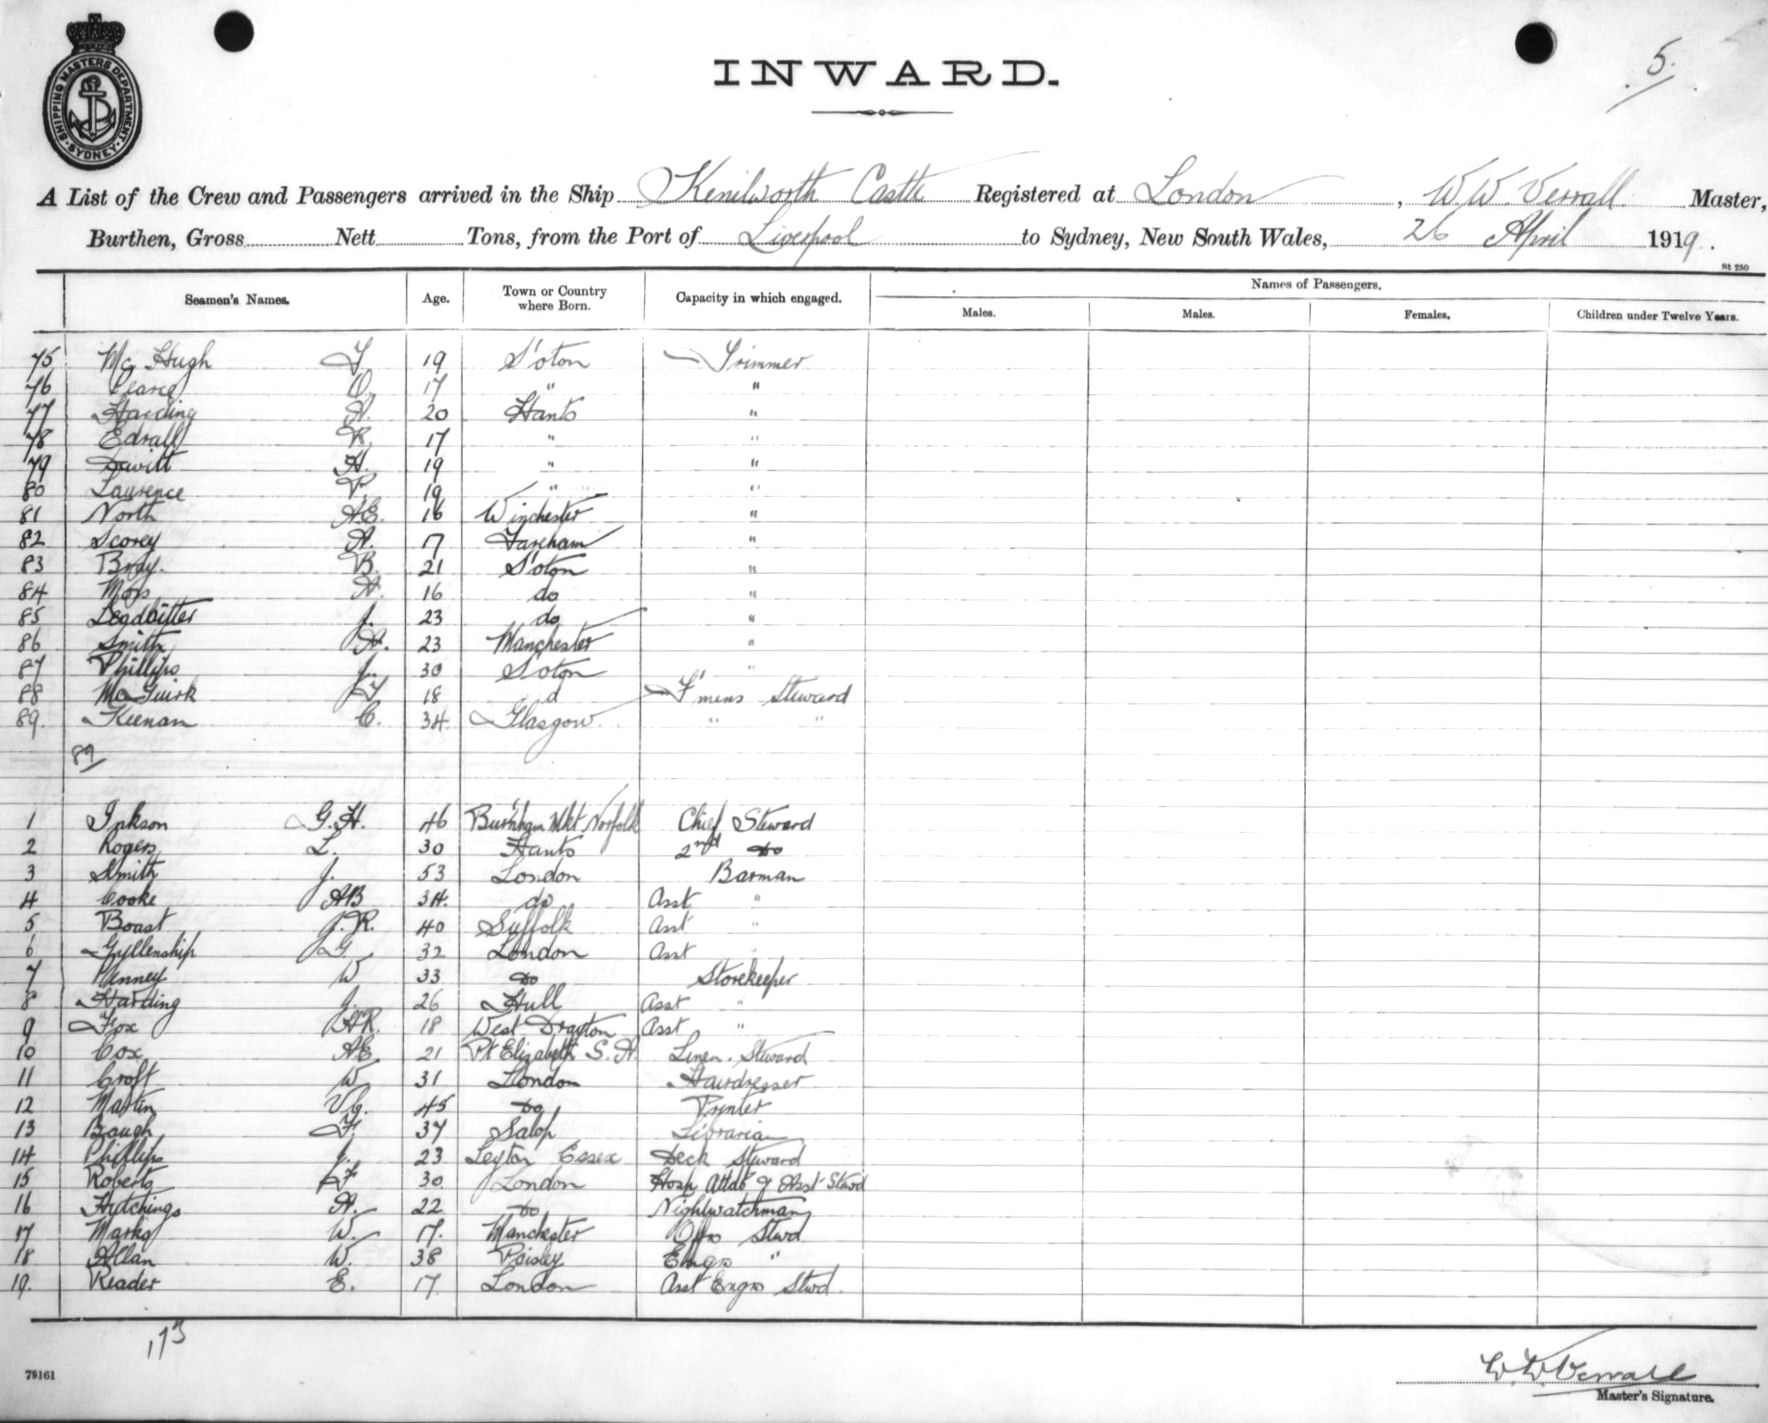 SHIPPING MASTERS DEPARTMENT. SYDNEY.
INWARD.
5.
A List of the Crew and Passengers arrived in the Ship Kenilworth Castle Registered at London, W. W. Verrall Master,
Burthen, Gross Nett Tons, from the Port of Liverpool to Sydney, New South Wales, 26 April 1919.
St 250
Seamen's Names. Age. Town or Country where Born. Capacity in which engaged. Names of Passengers.
Males. Males. Females. Children under Twelve Years.
75 McHugh 19 S'oton Trimmer
76 Pearce 17 " "
77 Harding A. 20 Hants "
78 Edrall R 17 " "
79 Dewitt A. 19 " "
80 Laurence 19 " "
81 North A.E. 16 Winchester "
82 Scorey A. 17 Fareham "
83 Bray. B. 21 S'oton "
84 A. 16 do "
85 Leadbitter J. 23 do "
86 Smith A. 23 Manchester "
87 Phillips J. 30 S'oton "
88 McGuirk 18 d F'mens Steward
89. Keenan C. 34 Glasgow " "
89
1 G.H. 46 Burnham Mkt Norfolk Chief Steward
2 Rogers L. 30 Hants 2nd do
3 Smith J. 53 London Barman
4 Cooke AB 34. do Asst "
5 Boast J.R. 40 Suffolk Asst "
6 Gyllenship G 32 London Asst "
7 Penney W 33 do Storekeeper
8 Harding J. 26 Hull Asst "
9 Fox 18 West Drayton Asst "
10 Cox AE 21 Pt Elizabeth S. A Linen. Steward
11 Croft W 31 London Hairdresser
12 Martin 45 do Printer
13 Baugh F. 37 Salop Librarian
14 Phillips J. 23 Leyton Essex Deck Steward
15 Roberts F 30 London Hosp Attdt & Asst Stwd
16 Hutchings A. 22 do Nightwatchman
17 Marks W. 17. Manchester Offrs Stwd
18 Allan W. 38 Paisley Engrs "
19. Reader E. 17 London Asst Engrs Stwd.
173
79161
W. W. Verrall
Master's Signature.